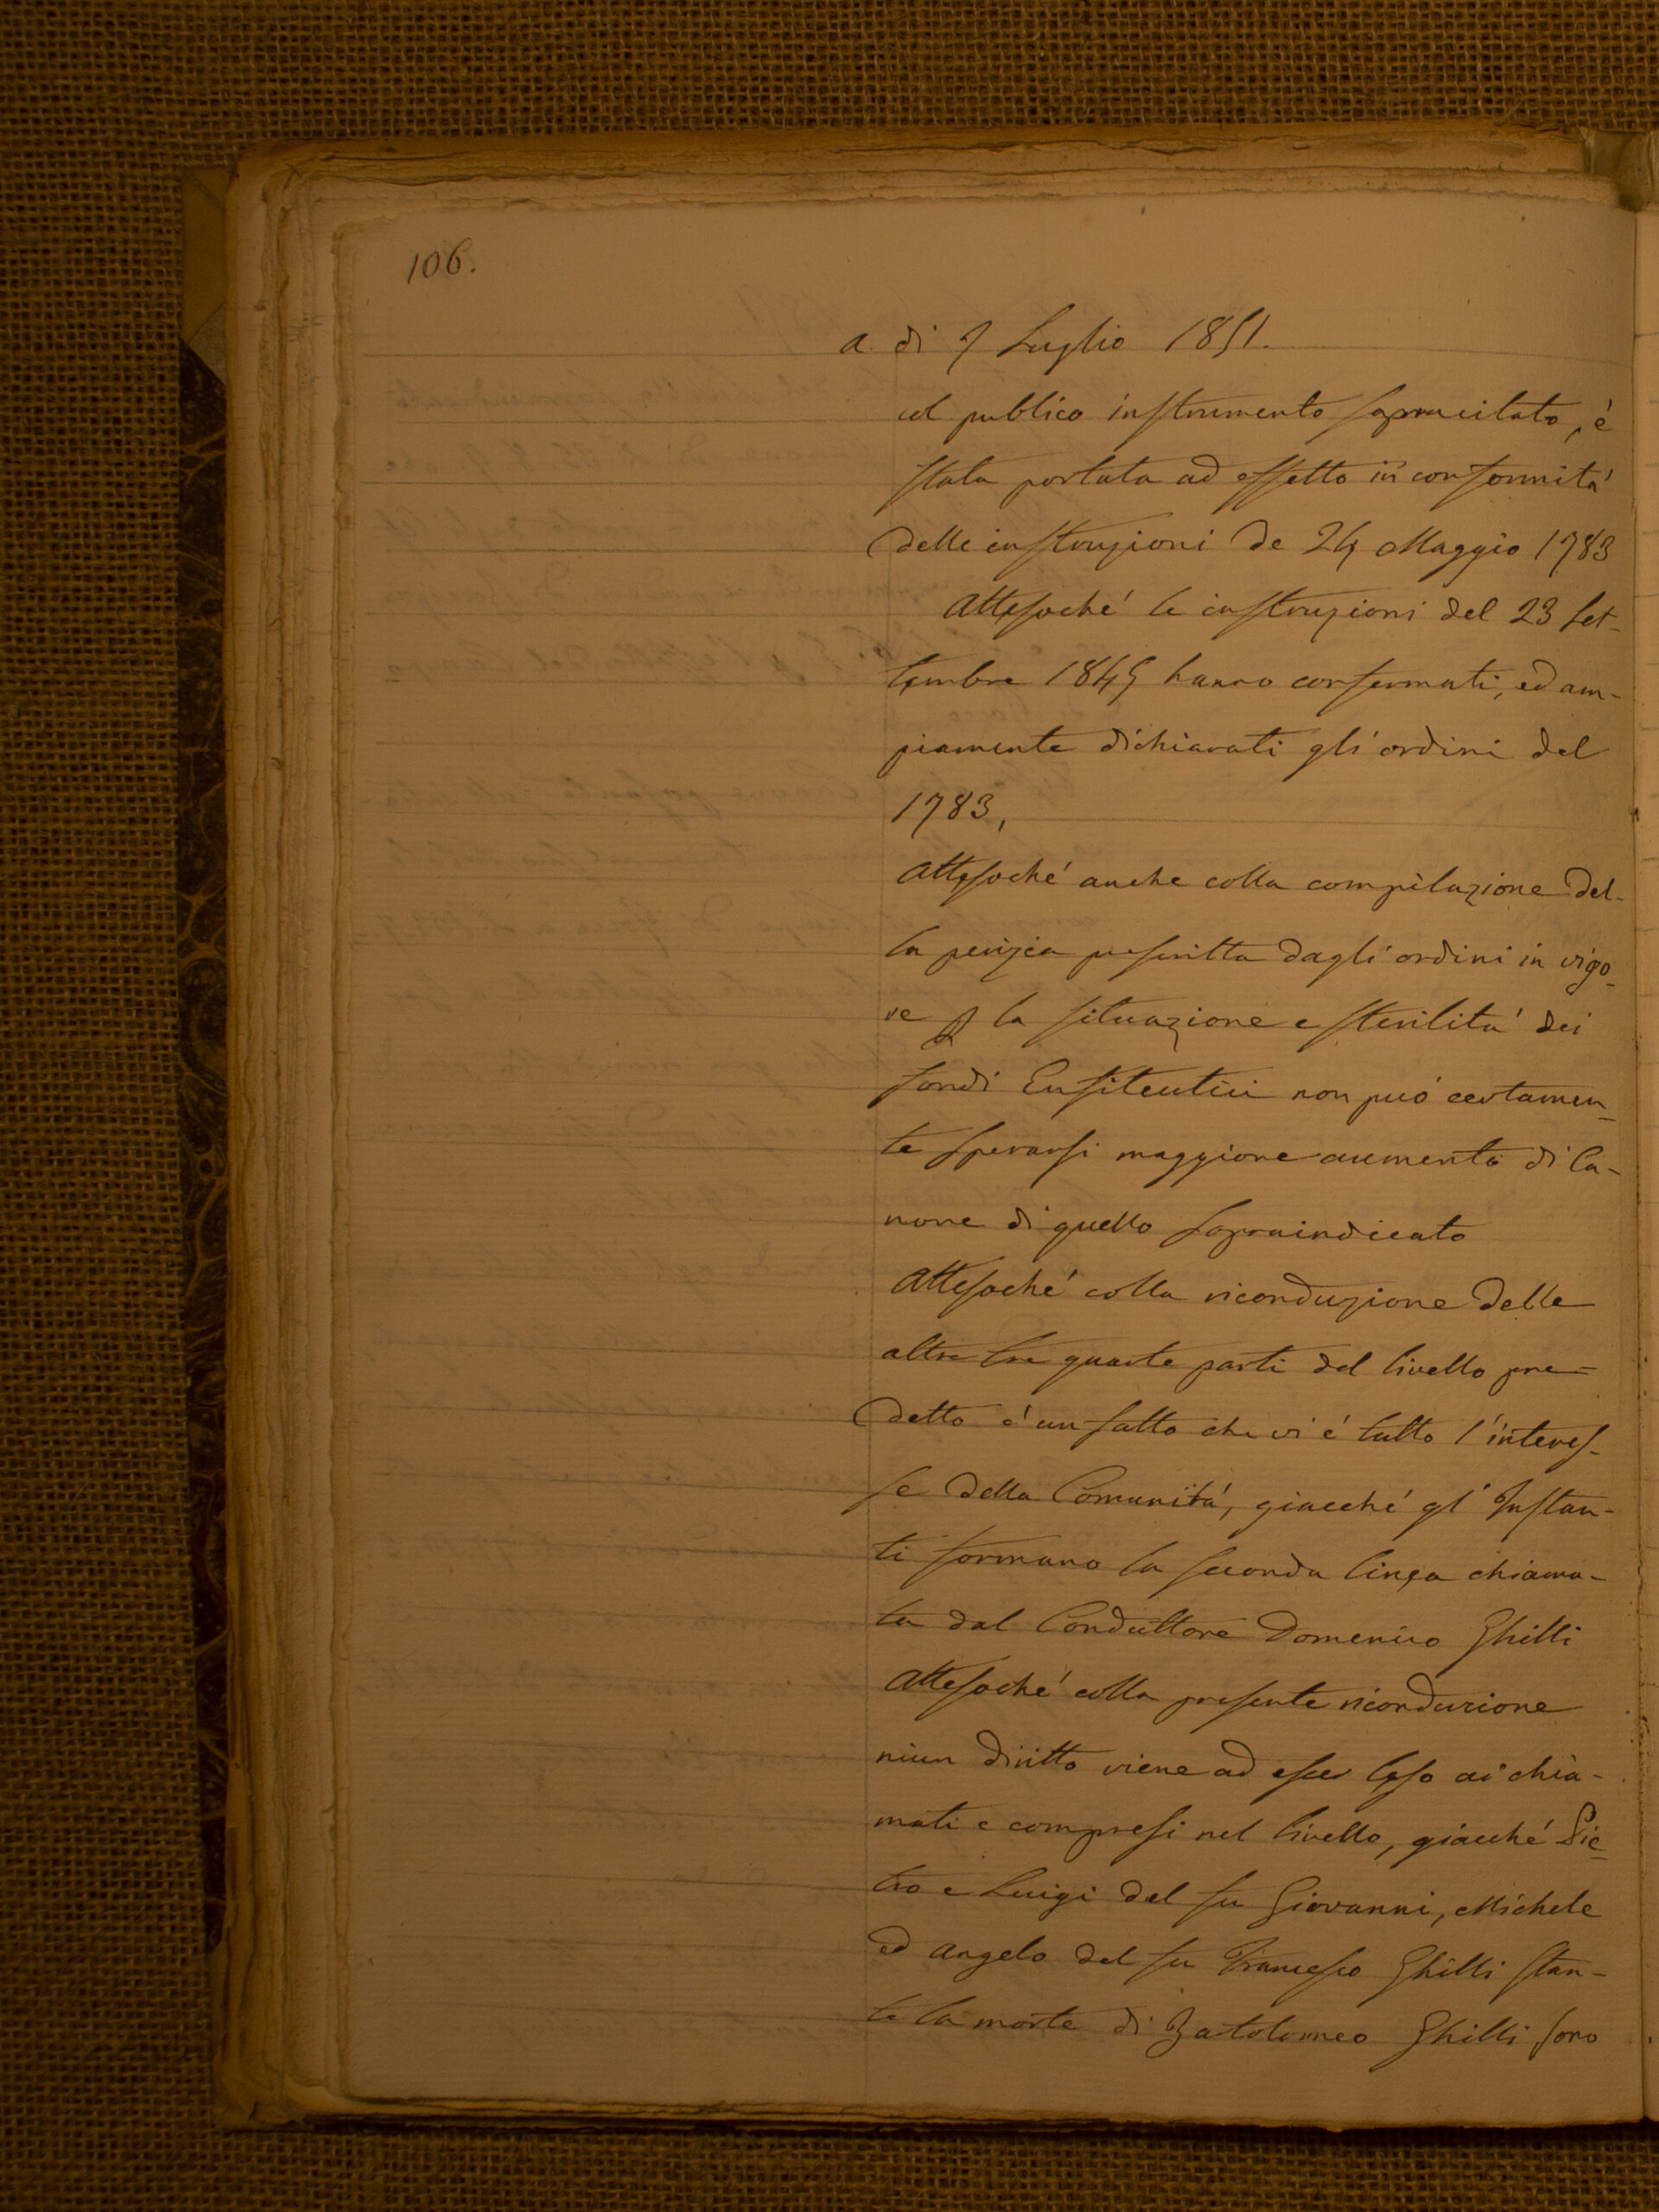 106.
a di 7 Luglio 1851.
col publico instrumento sopracitato, è
stata portata ad effetto in conformità
delle instruzioni de 24 Maggio 1783
Attesoché le instruzioni del 23 Set-
tembre 1845 hanno confermati, ed am-
piamente dichiarati gli ordini del
1783,
Attesoché anche colla compilazione del-
la perizia prescritta dagli ordini in vigo-
re p la situazione e sterilità dei
fondi Enfiteutici non può certamen-
te sperarsi maggiore aumento di Ca-
none di quello sopraindicato
Attesoché colla riconduzione delle
altre tre quarte parti del livello pre-
detto è un fatto che vi è tutto l'interes-
se della Comunità, giacché gl'Instan-
ti formano la seconda linea chiama-
ta dal Conduttore Domenico Ghilli
Attesoché colla presente riconduzione
niun diritto viene ad esser leso ai chia-
mati e compresi nel livello, giacché Pie-
tro e Luigi del fu Giovanni, Michele
ed Angelo del fu Francesco Ghilli stan-
te la morte di Batolomeo Ghilli sono